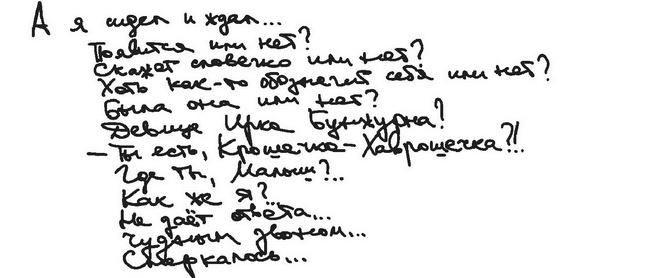 А я сидел и ждал...
Появится или нет?
Скажет словечко или нет?
Хоть как-то обозначит себя или нет?
Была она или нет?
Девица Ирка Бунжурна?
– Ты есть, Крошечка-Хаврошечка?!.
Где ты, Малыш?..
Как же я?..
Не даёт ответа...
Чудным звоном...
Смеркалось...